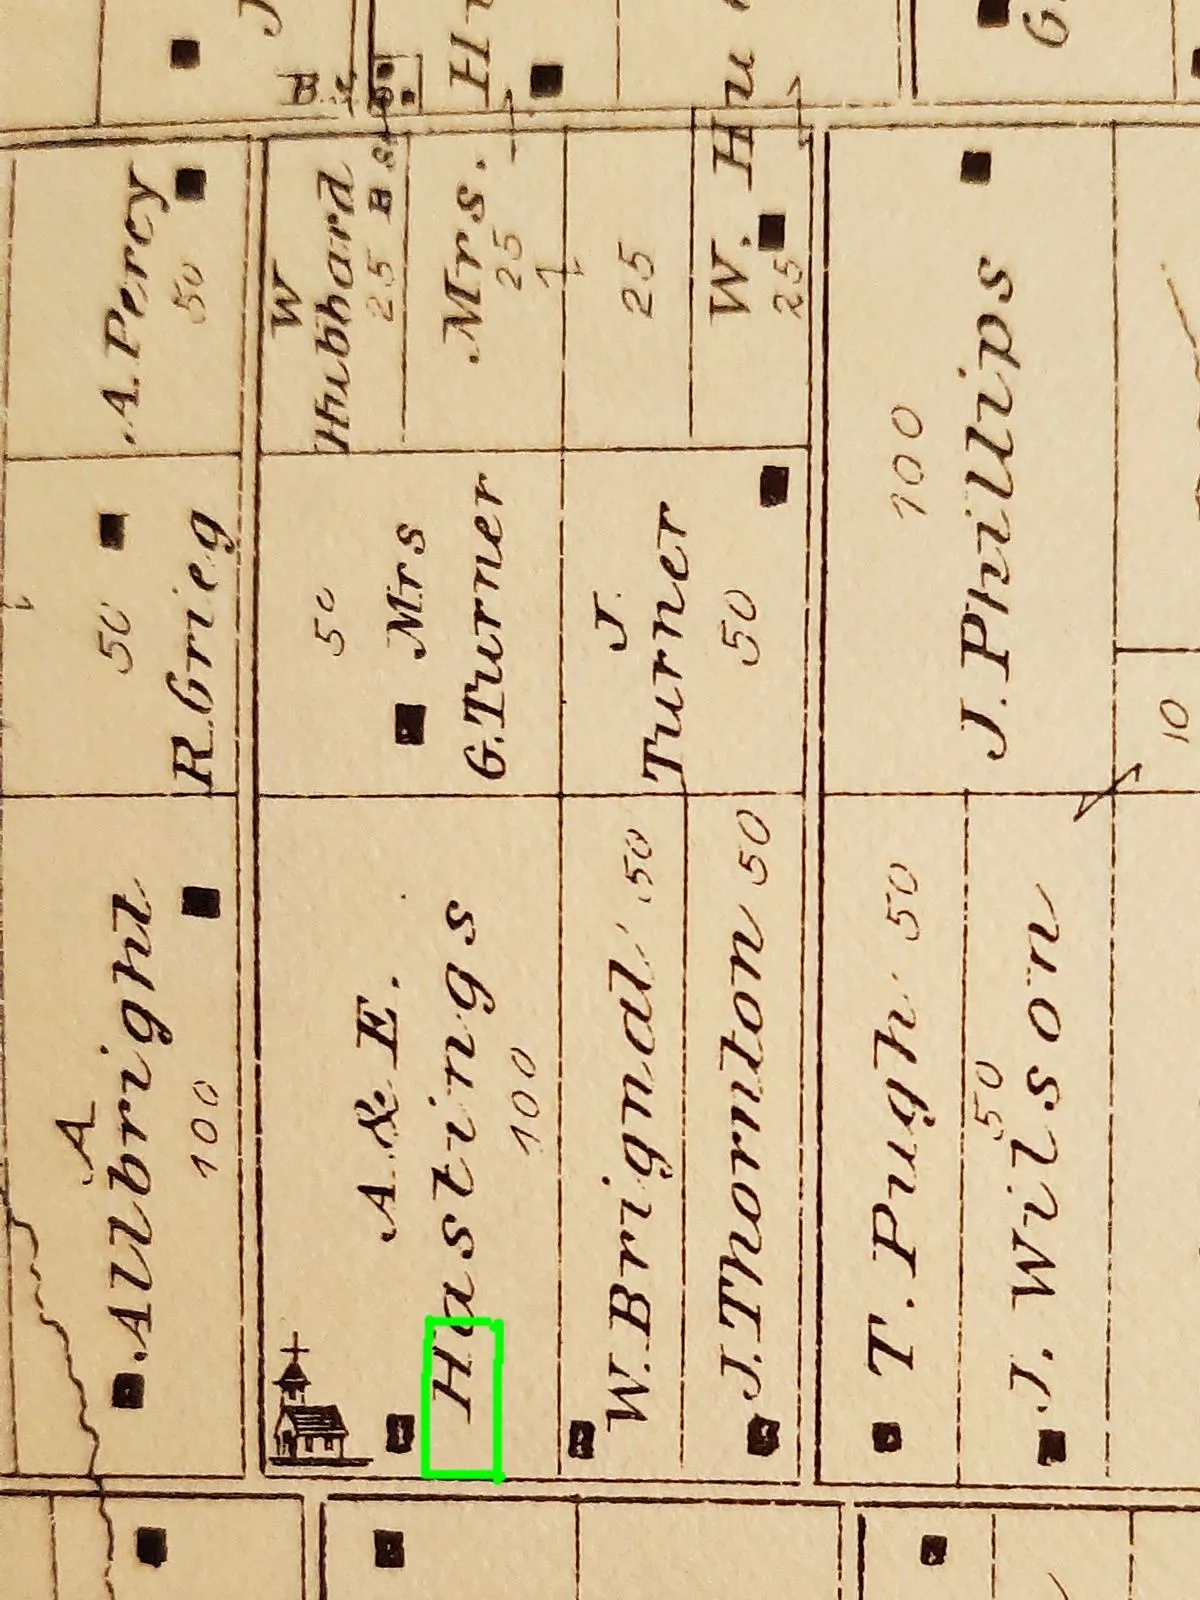 A. Percy
50
W
Hubbard
25
Mrs.
25
25
W. Hu
25
J. Phillips
100
50
R. Grieg
50
Mrs
G. Turner
J.
Turner
50
10
A
Albright
100
A. & E.
Hastings
100
W. Brignal 50
J. Thornton 50
T. Pugh 50
J. Wilson
50